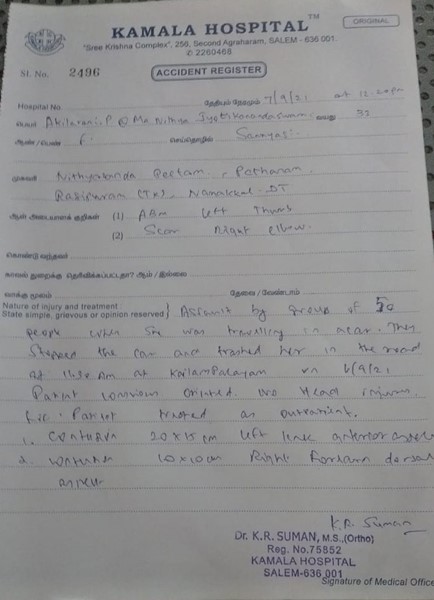 KAMALA HOSPITAL TM
ORIGINAL
"Sree Krishna Complex", 256, Second Agraharam, SALEM - 636 001.
✆ 2260468
Sl. No. 2496
ACCIDENT REGISTER
Hospital No. தேதியும் நேரமும் 7/9/21 at 12.20pm
பெயர் Akilarani.P @ Ma Nithya வயது 32
ஆண் / பெண் F. செய்தொழில்
முகவரி Nithyananda Peetam,
Rasipuram (TK), Namakkal - DT
ஆள் அடையாளக் குறிகள் (1) left Thumb
(2) Scar Right elbow.
கொண்டு வந்தவர்
காவல் துறைக்கு தெரிவிக்கப்பட்டதா? ஆம் / இல்லை
வாக்கு மூலம் தேவை / வேண்டாம்
Nature of injury and treatment :
State simple, grievous or opinion reserved } Assault by group of 50
people when she was travelling in a car. They
stopped the car and her in the road
at AM at on 6/9/21
Patient conscious oriented. no Head injury.
Patient treated as outpatient.
1. Contusion 20x15 cm left anterior
2. Contusion 10x10cm Right forearm dorsal
K.R. Suman
Dr. K.R. SUMAN, M.S.,(Ortho)
Reg. No.75852
KAMALA HOSPITAL
SALEM-636 001
Signature of Medical Office